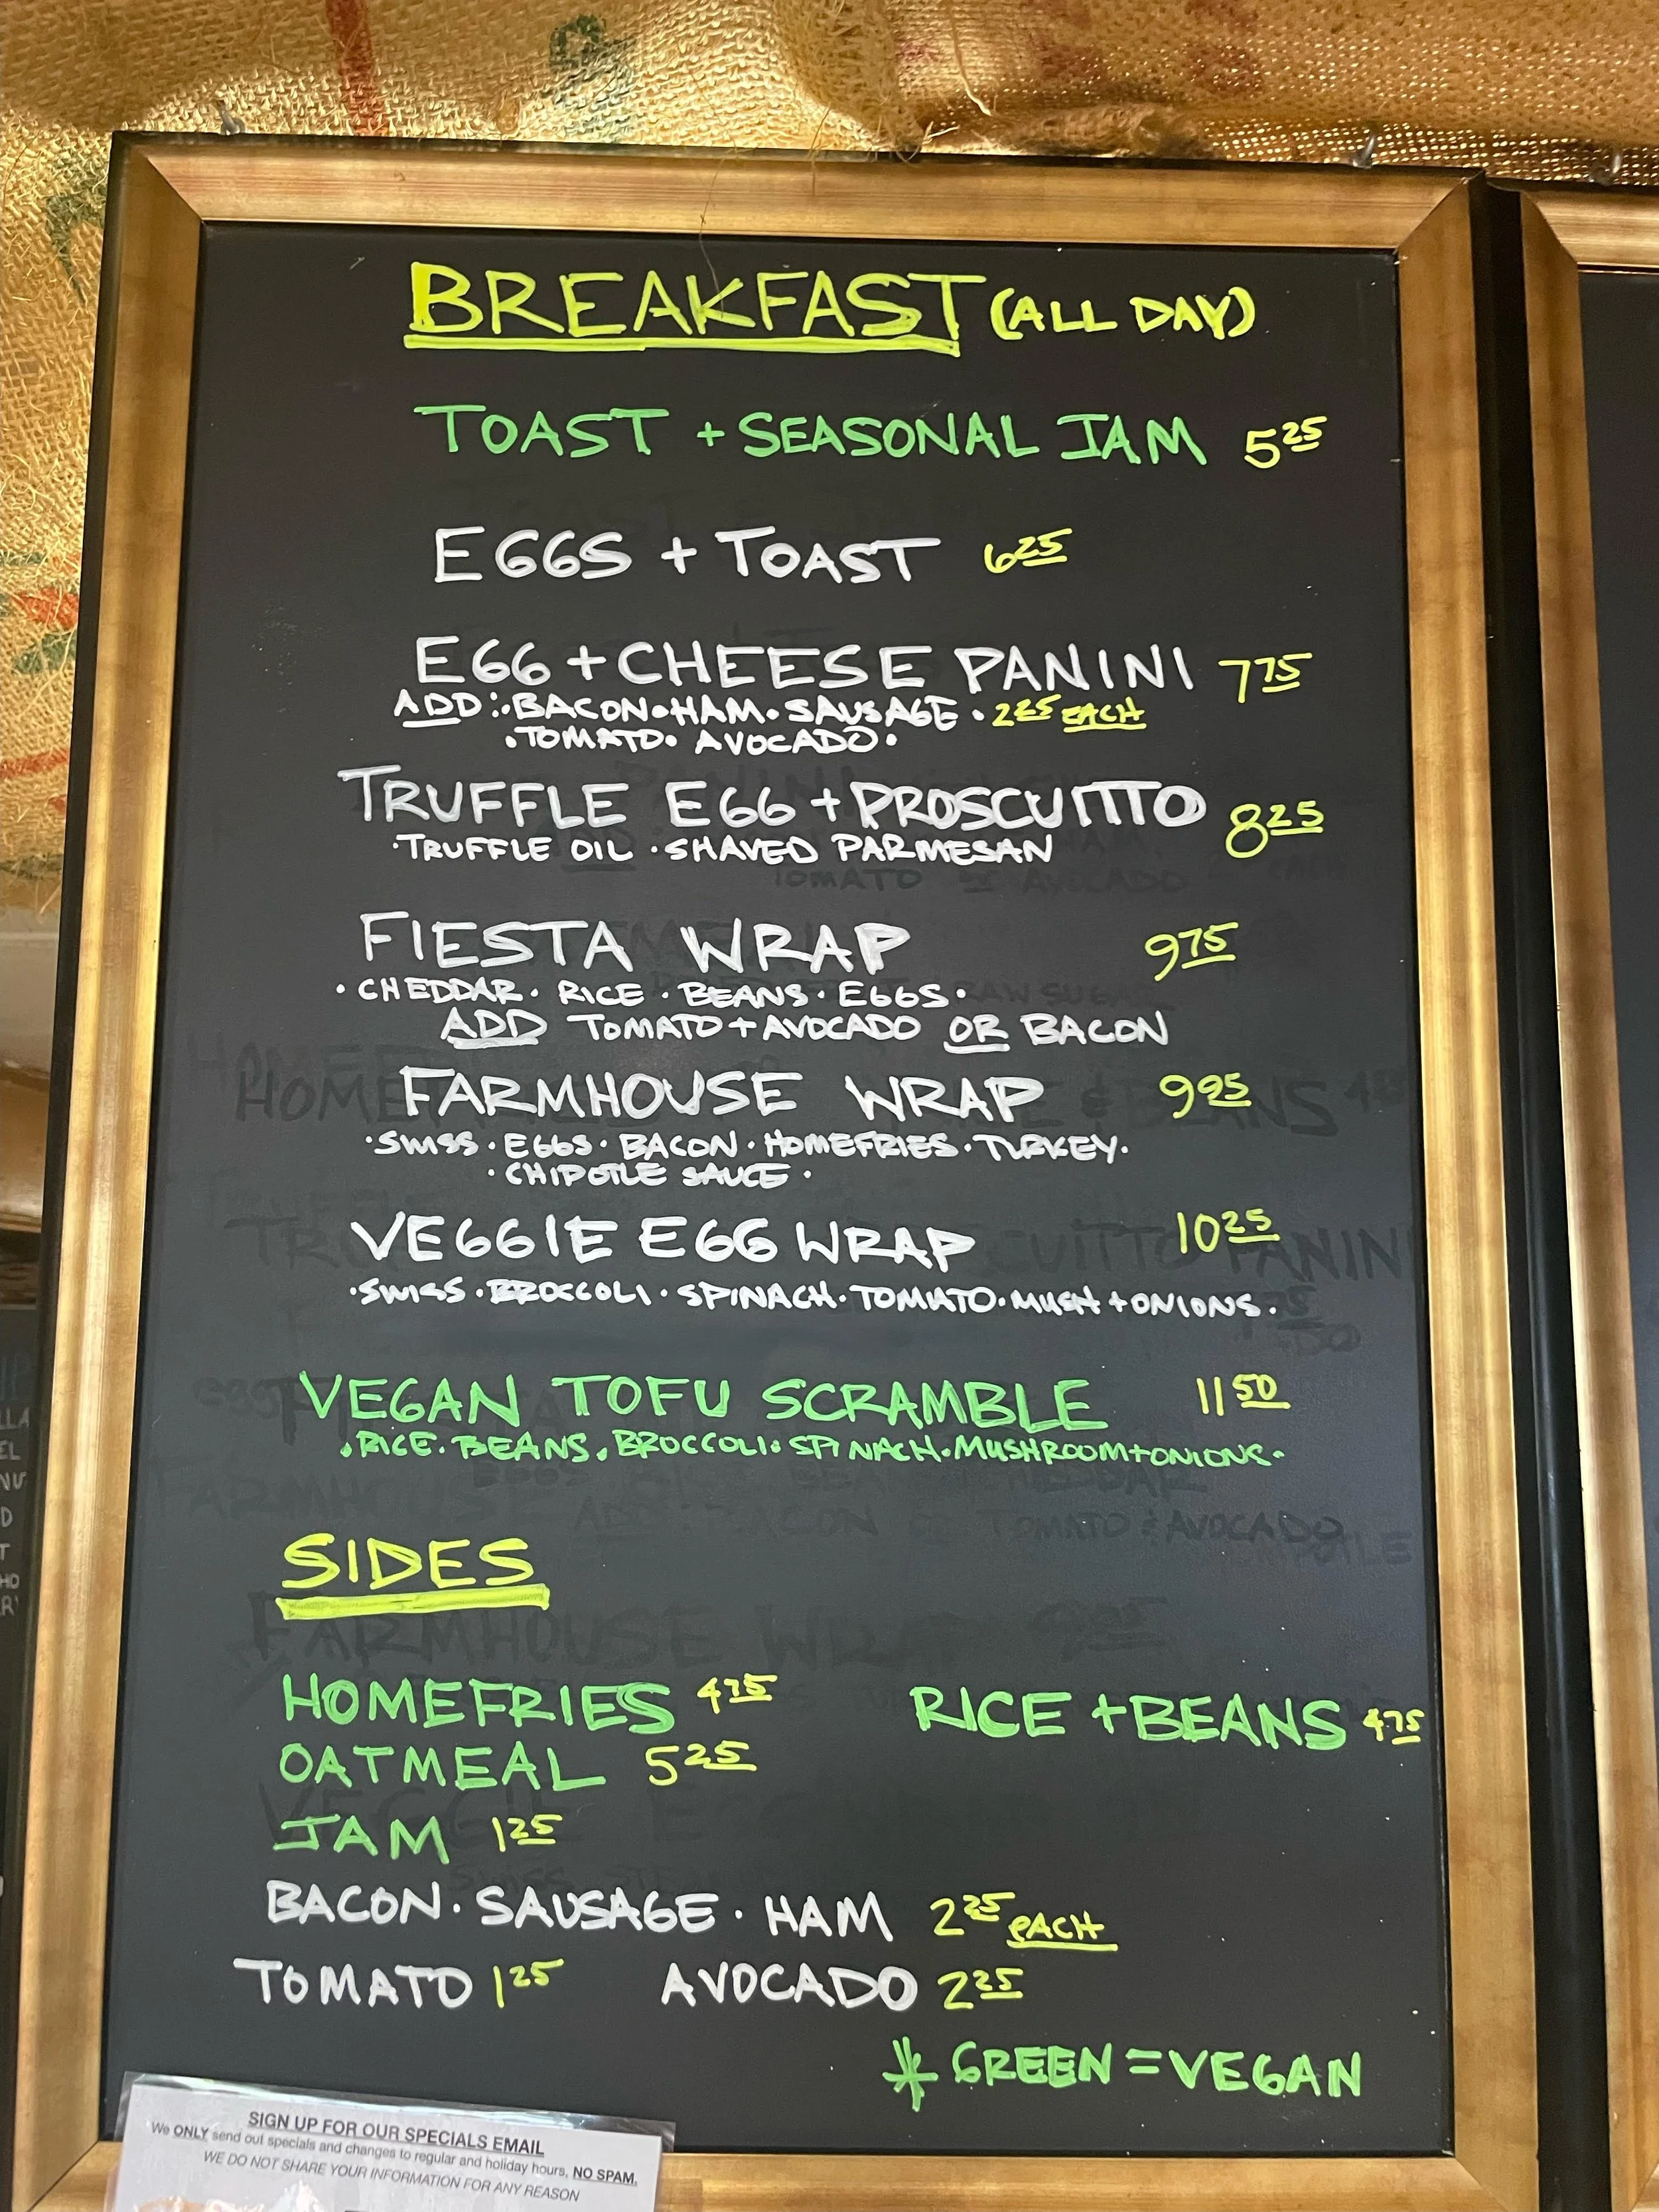 BREAKFAST (ALL DAY)
TOAST + SEASONAL JAM 5 25
EGGS + TOAST 6 25
EGG + CHEESE PANINI 7 75
ADD: • BACON • HAM • SAUSAGE • 2 25 EACH
• TOMATO • AVOCADO •
TRUFFLE EGG + PROSCUITTO 8 25
• TRUFFLE OIL • SHAVED PARMESAN
FIESTA WRAP 9 75
• CHEDDAR • RICE • BEANS • EGGS •
ADD TOMATO + AVOCADO OR BACON
FARMHOUSE WRAP 9 95
• SWISS • EGGS • BACON • HOMEFRIES • TURKEY •
• CHIPOTLE SAUCE •
VEGGIE EGG WRAP 10 25
• SWISS • BROCCOLI • SPINACH • TOMATO • MUSH + ONIONS •
VEGAN TOFU SCRAMBLE 11 50
• RICE • BEANS • BROCCOLI • SPINACH • MUSHROOM + ONIONS •
SIDES
HOMEFRIES 4 75 RICE + BEANS 4 75
OATMEAL 5 25
JAM 1 25
BACON • SAUSAGE • HAM 2 25 EACH
TOMATO 1 25 AVOCADO 2 25
* GREEN = VEGAN
SIGN UP FOR OUR SPECIALS EMAIL
We ONLY send out specials and changes to regular and holiday hours, NO SPAM.
WE DO NOT SHARE YOUR INFORMATION FOR ANY REASON